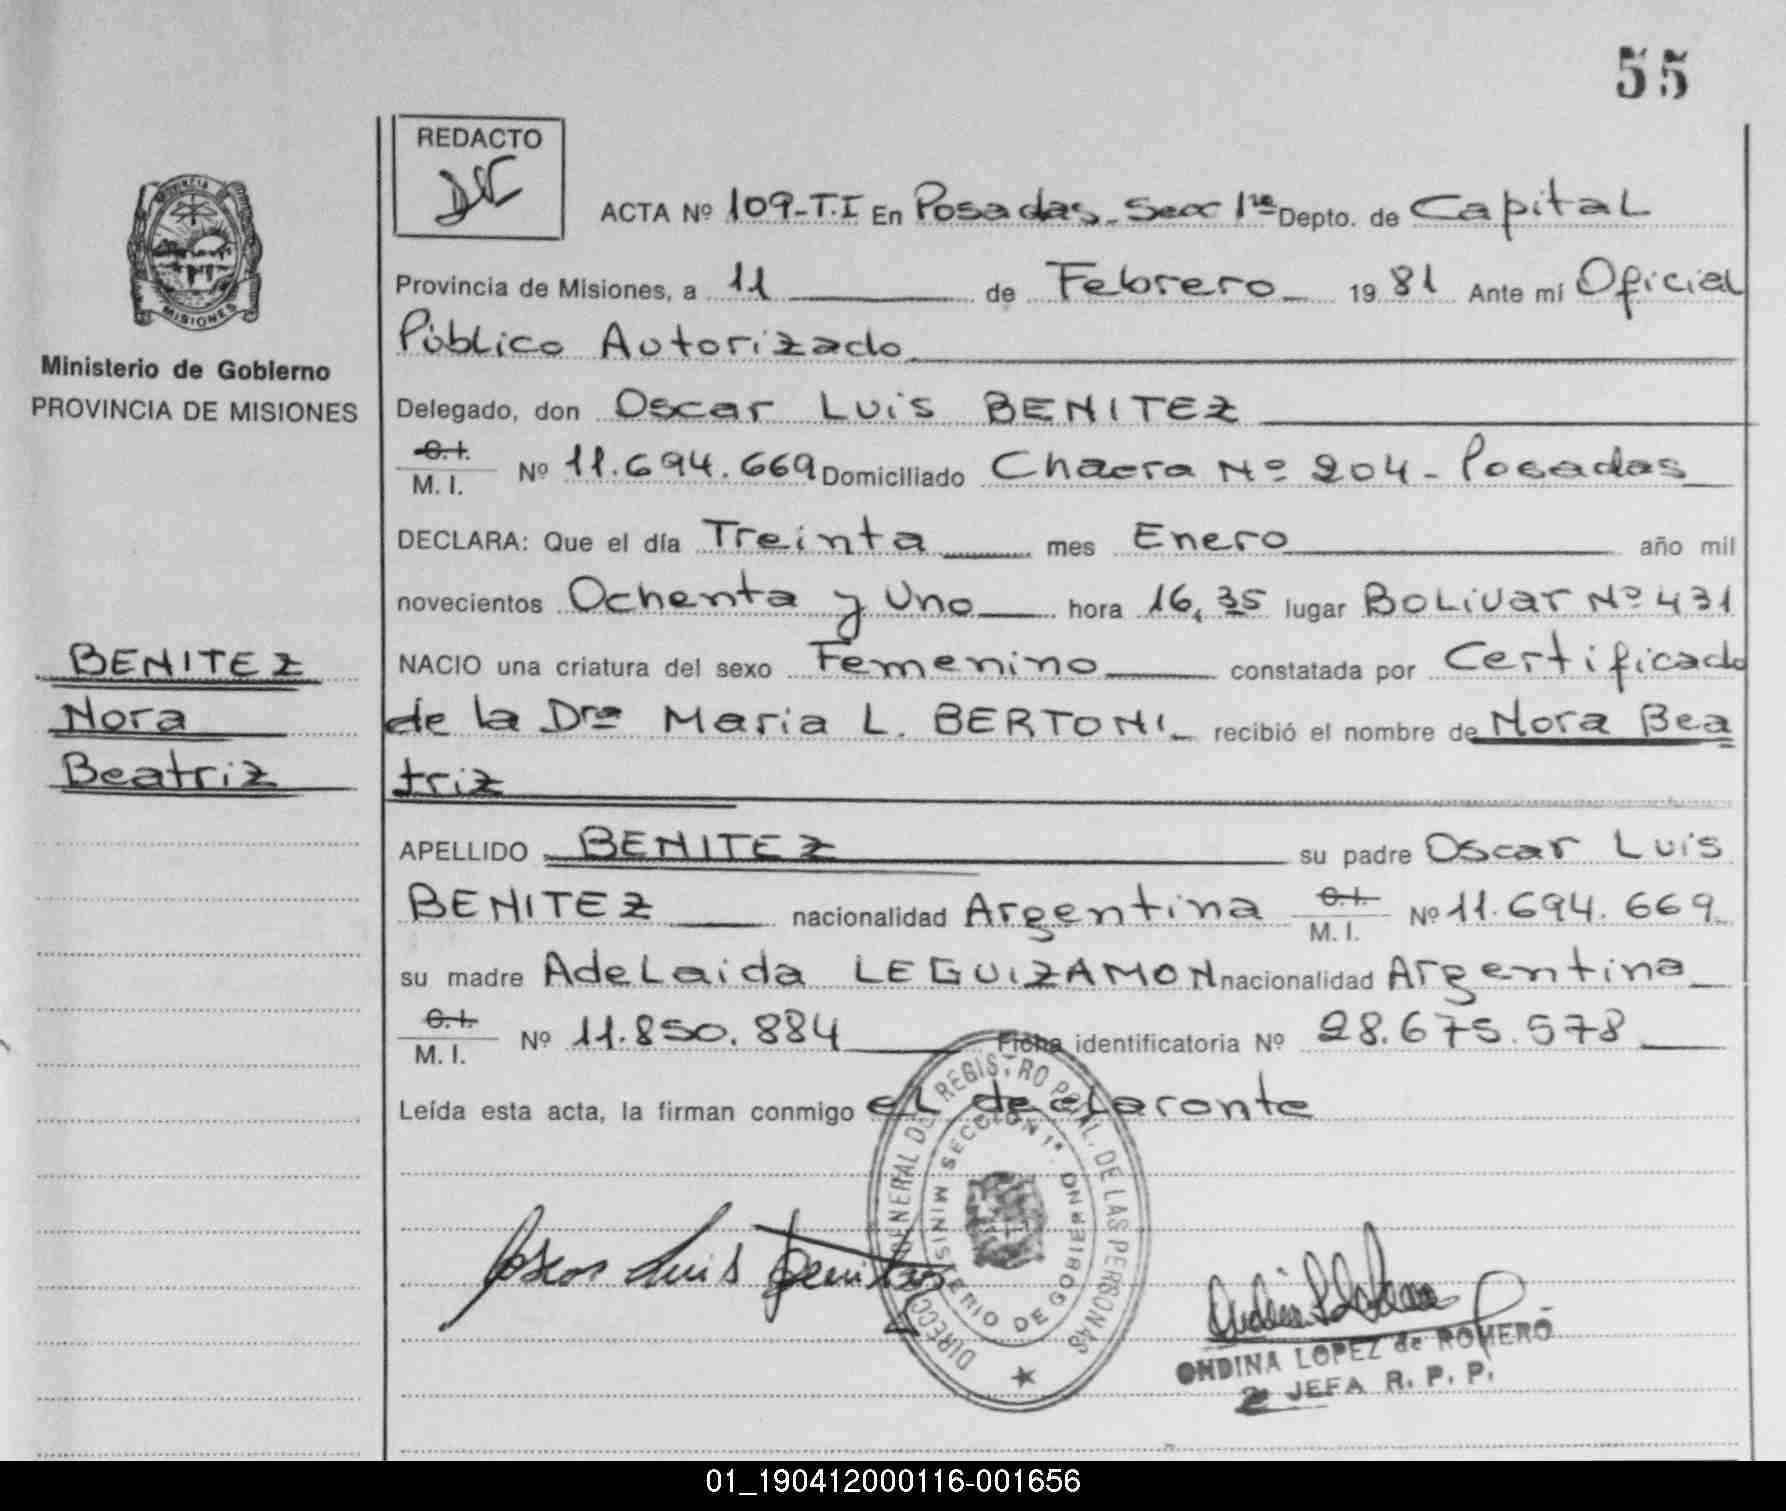 55
REDACTO
ACTA Nº 109-T.I En Posadas. Secc 1ra Depto. de Capital
Provincia de Misiones, a 11 de Febrero 1981 Ante mi Oficial
Público Autorizado
PROVINCIA
MISIONES
Ministerio de Gobierno
PROVINCIA DE MISIONES
Delegado, don Oscar Luis BENITEZ
C. I.
M. I. Nº 11.694.669 Domiciliado Chacra Nº 204 - Posadas
DECLARA: Que el día Treinta mes Enero año mil
novecientos Ochenta y Uno hora 16,35 lugar Bolivar Nº 431
BENITEZ
Nora
Beatriz
NACIO una criatura del sexo Femenino constatada por Certificado
de la Dra Maria L. BERTONI recibió el nombre de Nora Bea
triz
APELLIDO BENITEZ su padre Oscar Luis
BENITEZ nacionalidad Argentina C. I. M. I. Nº 11.694.669
su madre Adelaida LEGUIZAMON nacionalidad Argentina
C. I.
M. I. Nº 11.850.884 Ficha identificatoria Nº 28.675.578
Leída esta acta, la firman conmigo el declarante
DIRECC. GENERAL DEL REGISTRO PCIAL. DE LAS PERSONAS
SECCION 1ª.
MINISTERIO DE GOBIERNO
Oscar Luis Benitez
ONDINA LOPEZ de ROMERO
2º JEFA R. P. P.
01_190412000116-001656